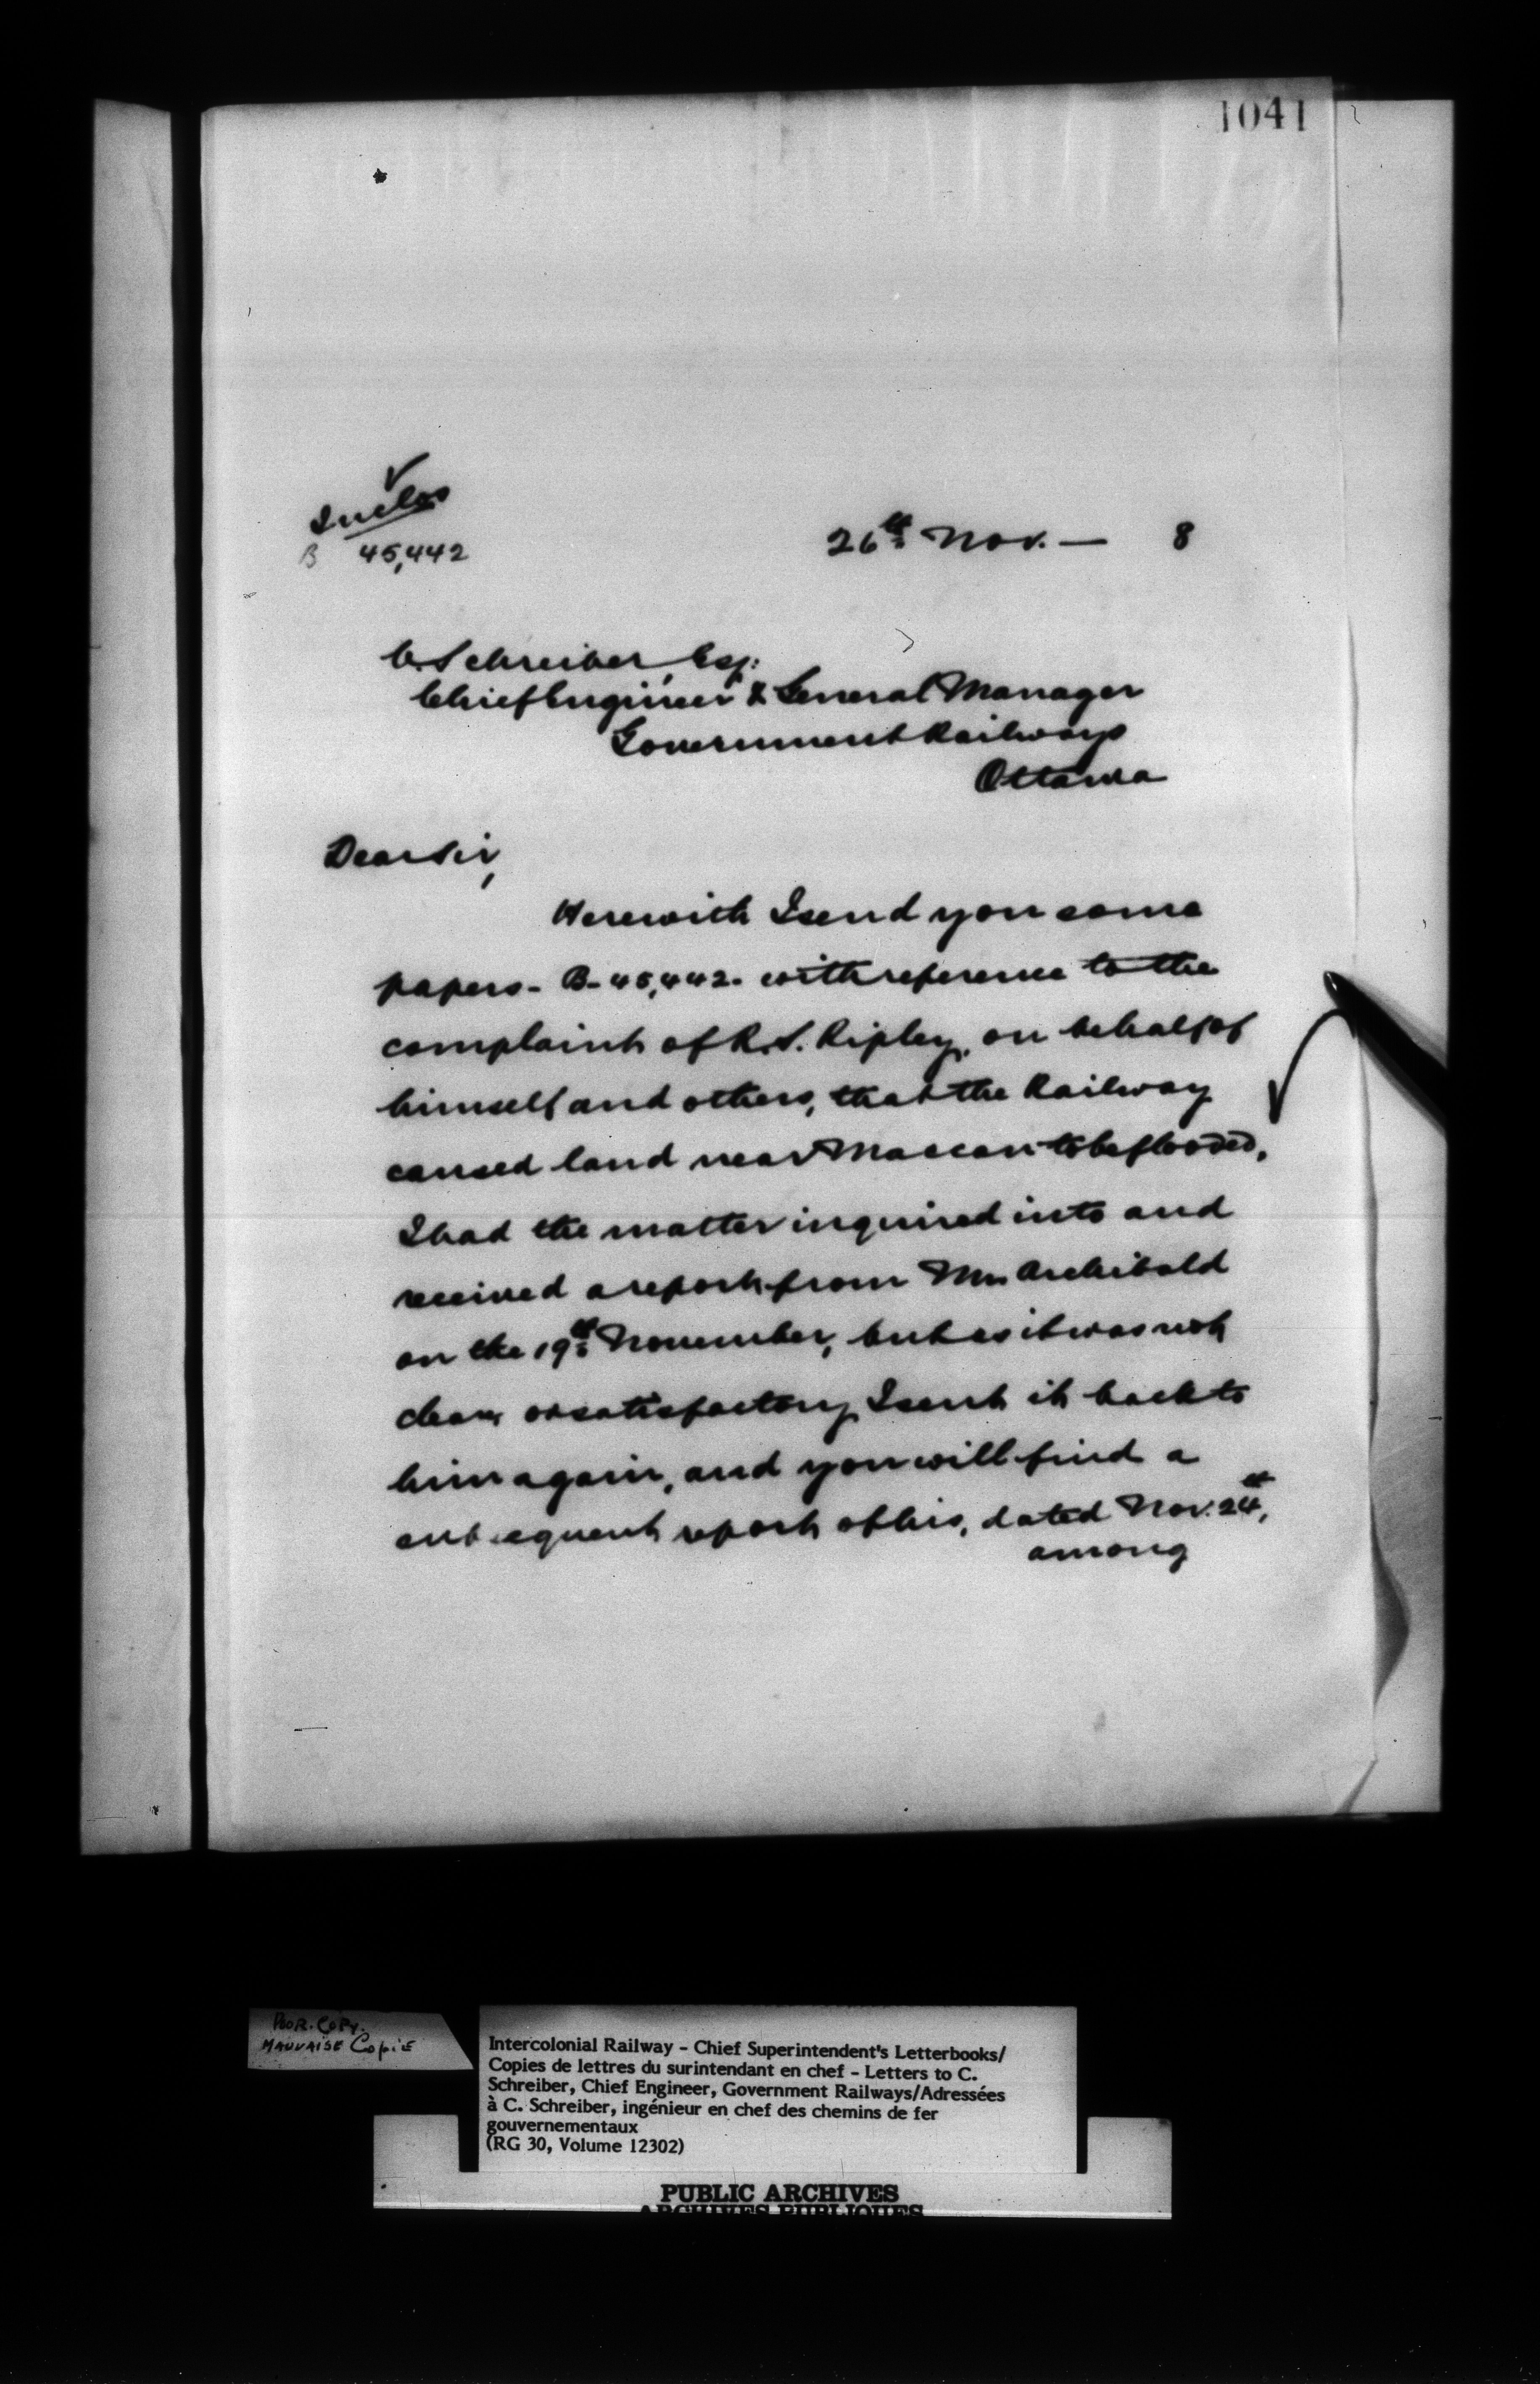 1041
Inclos
B 45,442
26th Nov. — 8
C. Schreiber, Esq:
Chief Engineer & General Manager
Government Railways
Ottawa
Dear Sir,
Herewith I send you some
papers - B- 45,442. with reference to the
complaint of R. S. Ripley, on behalf of
himself and others, that the Railway
caused land near Maccan to be flooded.
I had the matter inquired into and
received a report from Mr. Archibald
on the 19th November, but as it was not
clear or satisfactory I sent it back to
him again, and you will find a
subsequent report of his, dated Nov. 24th,
among
POOR. COPY.
MAUVAISE COPIE
Intercolonial Railway - Chief Superintendent's Letterbooks/
Copies de lettres du surintendant en chef - Letters to C.
Schreiber, Chief Engineer, Government Railways/Adressées
à C. Schreiber, ingénieur en chef des chemins de fer
gouvernementaux
(RG 30, Volume 12302)
PUBLIC ARCHIVES
ARCHIVES PUBLIQUES